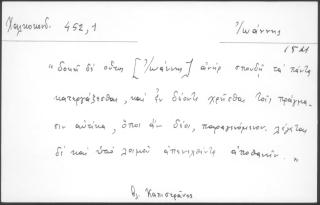 Χαλκοκονδ. 452,1
Ἰωάννης
« δοκεῖ δὲ οὗτος [Ἰωάννης] ἀνὴρ σπουδῇ τὰ πάντα
κατεργάζεσθαι, καὶ ἐν δέοντι χρῆσθαι τοῖς πράγμα-
σιν αὐτίκα, ὅποι ἂν δέοι, παραγινόμενον. λέγεται
δὲ καὶ ὑπὸ λοιμοῦ ἀπενεχθέντα ἀποθανεῖν. »
Καπιστράνος